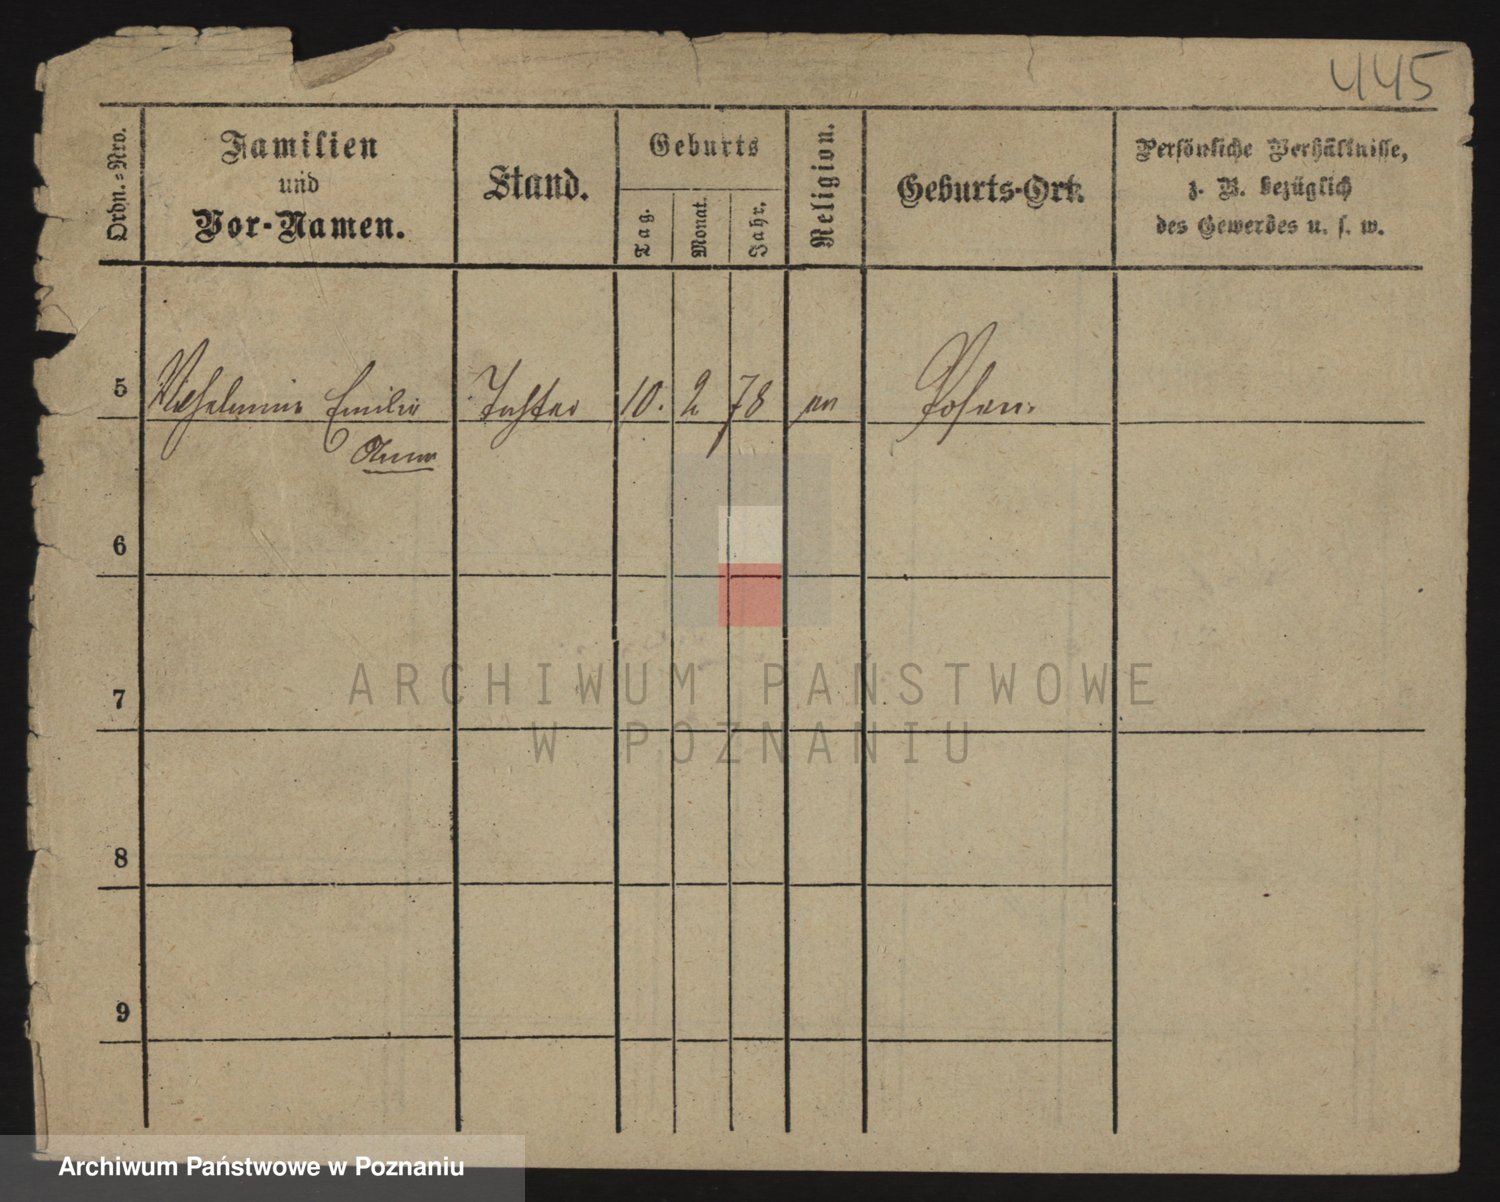 445
Ordn.-Nro.
Familien
und
Vor-Namen.
Stand.
Geburts
Tag.
Monat.
Jahr.
Religion.
Geburts-Ort.
Persönliche Verhältnisse,
z. B. bezüglich
des Gewerbes u. s. w.
5 Wilhelmine Emilie Tochter 10. 2 78 Posen.
Anna
6
7
8
9
ARCHIWUM PAŃSTWOWE
W POZNANIU
Archiwum Państwowe w Poznaniu